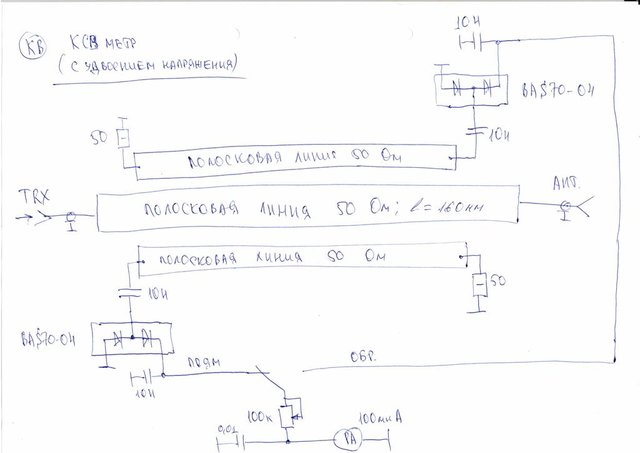 КВ
КСВ МЕТР
(С УДВОЕНИЕМ НАПРЯЖЕНИЯ)
10Н
BAS70-04
10Н
50
ПОЛОСКОВАЯ ЛИНИЯ 50 Ом
TRX
ПОЛОСКОВАЯ ЛИНИЯ 50 Ом; l=160мм
АНТ.
ПОЛОСКОВАЯ ЛИНИЯ 50 Ом
10Н
50
BAS70-04
10Н
ПРЯМ
ОБР.
100к
0,01
PA
100мкА